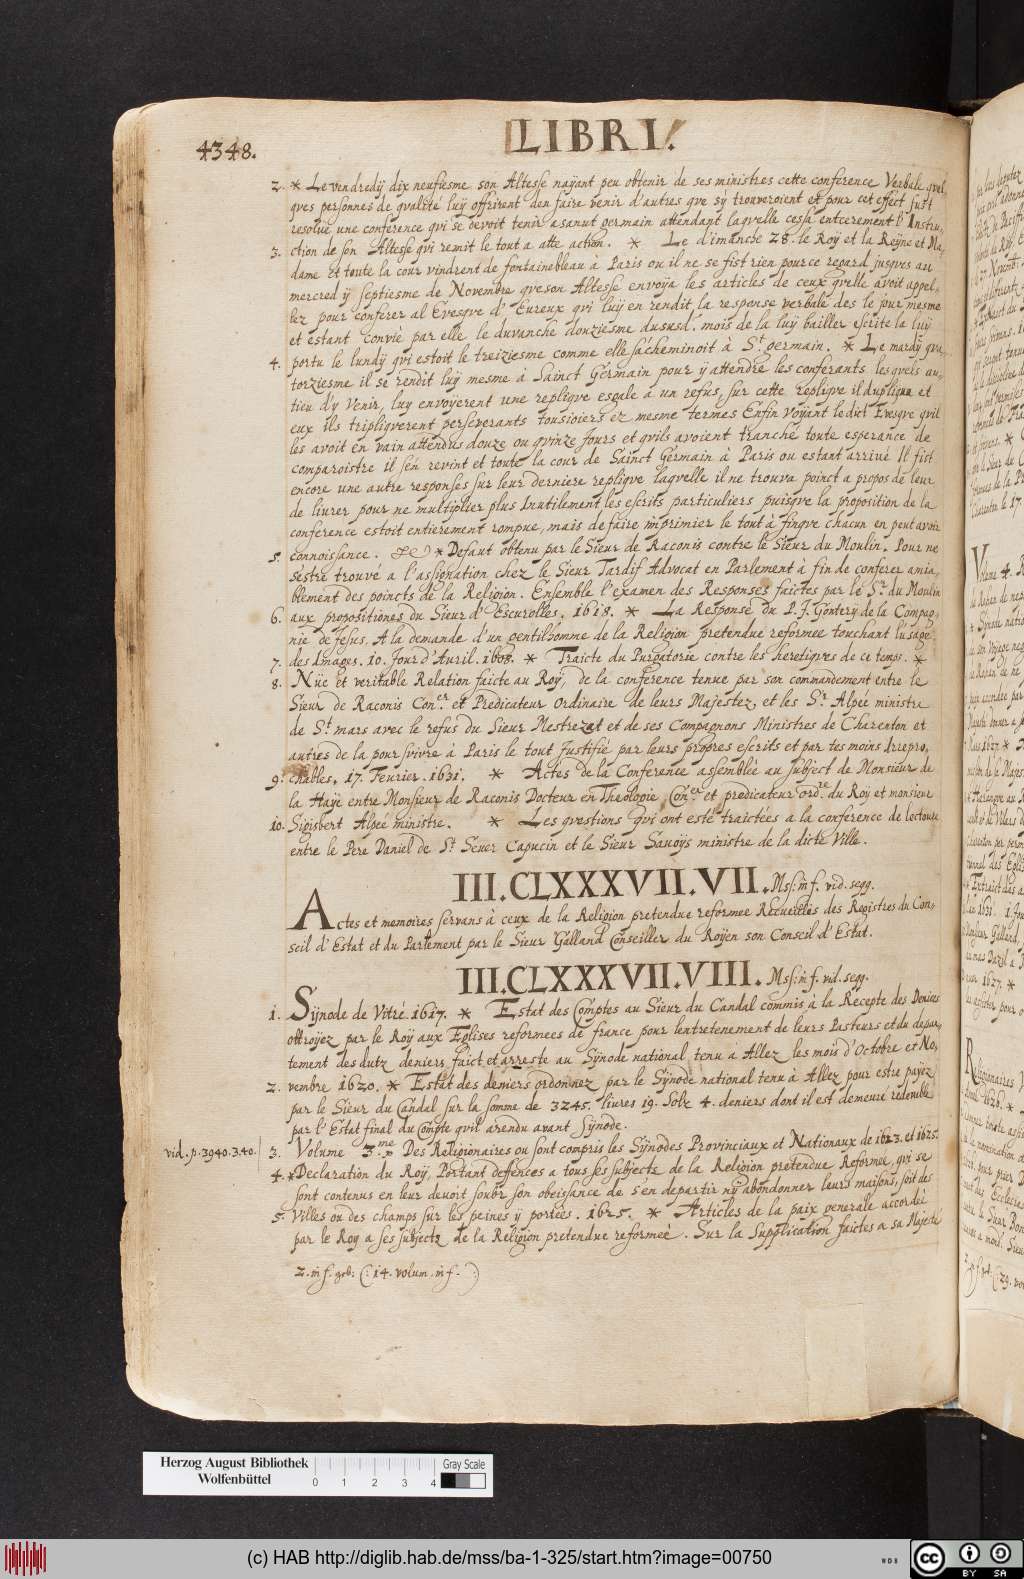 4348.
LIBRI.
2. * Le vendredÿ dix neufiesme son Altesse naÿant peu obtenir de ses ministres cette conference Verbale quel,
ques personnes de qualité luÿ offrirent den faire venir d'autres que sy trouveroient et pour cet effect fust
resolue une conference qui se devoit tenir a sanut germain attendant laquelle cessa entcerement l'Instru,
3. ction de son Altesse qui remit le tout a atte action. * Le dimanche 28. le Roÿ et la Reÿne et Ma,
dame et toute la cour vindrent de fontainebleau à Paris ou il ne se fist rien pource regard jusques au
mercredÿ septiesme de Novembre que son Altesse envoÿa les articles de ceux qu'elle avoit appel,
lez pour conferer al Evesque d'Eureux qui luÿ en rendit la response verbale des le jour mesme
et estant convié par elle le duvanche douziesme dususd. mois de la luÿ bailler escrite la luÿ
4. portu le lundÿ qui estoit le treiziesme comme elle s'acheminoit à St. germain. * Le mardÿ qua,
torziesme il se rendit luÿ mesme à Sainct Germain pour ÿ attendre les conferants lesquels au,
tieu d'y Venir, luy envoyerent une replique esgale à un refus, sur cette replique il dupliqua et
eux ils tripliquerent perseverants tousioiers ez mesme termes Enfin voÿant ledict Evesque quil
les avoit en vain attendus douze ou quinze jours et quils avoient tranché toute esperance de
comparoistre il s'en revint et toute la cour de Sainct Germain à Paris ou estant arrivé Il fist
encore une autre responses sur leur derniere replique laquelle il ne trouva poinct a propos de leur
de liurer pour ne multiplier plus Inutilement les escrits particuliers puisque la proposition de la
conference estoit entierement rompue, mais de faire imprimier le tout à fingue chacun en peut avoir
5. connoissance. * Defaut obtenu par le Sieur de Raconis contre le Sieur du Moulin. Pour ne
s'estre trouvé a l'assignation chez le Sieur Tardif Advocat en Parlement à fin de conferer amia,
blement des poincts de la Religion. Ensemble l'examen des Responses faictes par le Sr. du Moulin
6. aux propositiones du Sieur d'Escurolles. 1618. * La Response du P. J. Gontery de la Compag,
nie de Jesus. A la demande d'un gentilhomme de la Religion pretendue reformee touchant lusage
7. des Images. 10. Jour d'Auril. 1608. * Traicte du Purgatorie contre les heretiques de ce temps. *
8. Nüe et veritable Relation faicte au Roÿ, de la conference tenue par son commandement entre le
Sieur de Raconis Concr. et Predicateur Ordinaire de leurs Majestez, et les Sr. Alpée ministre
de St. mars avec le refus du Sieur Mestrezat et de ses Compagnons Ministres de Charenton et
autres de la pour suivre à Paris le tout Justifié par leurs propres escrits et par tes moins Irrepro,
9. chables. 17. Feurier. 1631. * Actes de la Conference assemblée au subject de Monsieur de
la Haÿe entre Monsieur de Raconis Docteur en Theologie, Concr. et predicateur ordre. du Roÿ et monsieur
10. Sigisbert Alpeé ministre. * Les questions qui ont esté traictées a la conference de lectoure
entre le Pere Daniel de St. Sever Capucin et le Sieur Sauoÿs ministre de la dicte Ville.
III. CLXXXVII. VII. Mss: in f. vid. segg.
Actes et memoires servans à ceux de la Religion pretendue reformee Recueilles des Registres du Con,
seil d'Estat et du Parlement par le Sieur Galland Conseiller du Roÿen son Conseil d'Estat.
III. CLXXXVII. VIII. Mss: in f. vid. segg.
1. Sÿnode de Vitré. 1617. * Estat des Comptes au Sieur du Candal commis à la Recepte des Deniers
ottroÿez par le Roÿ aux Eglises reformees de france pour lentretenement de leurs Pasteurs et du depar,
tement des dutz deniers faict et arresté au Sÿnode national tenu a Allez les mois d'Octobre et No,
2. vembre 1620. * Estat des deniers ordonnez par le Sÿnode national tenu à Allez pour estre payez
par le Sieur du Candal sur la somme de 3245. liures 19. Solz 4. deniers dont il est demeuré redevable
par l'Estat final du Compte quil arendu avant Sÿnode.
vid. p. 3940. 3. 40.
3. Volume 3.me Des Religionaires ou sont compris les Sÿnodes Provinciaux et Nationaux de 1623. et 1625.
4. * Declaration du Roÿ, Portant deffences a tous ses subjects de la Religion pretendue Reformee, qui se
sont contenus en leur devoit soubz son obeissance de s'en departir nÿ abondonner leurs maisons, soit des
5. Villes ou des champs sur les peines ÿ portees. 1625. * Articles de la paix generale accordeé
par le Roy a ses subjectz de la Religion pretendue reformeé. Sur la Supplication faictes a sa Majesté
2. in f. geb: (: 14. volum. in f. :)
Herzog August Bibliothek
Wolfenbüttel
0 1 2 3 4
Gray Scale
(c) HAB http://diglib.hab.de/mss/ba-1-325/start.htm?image=00750
WDB
cc BY SA